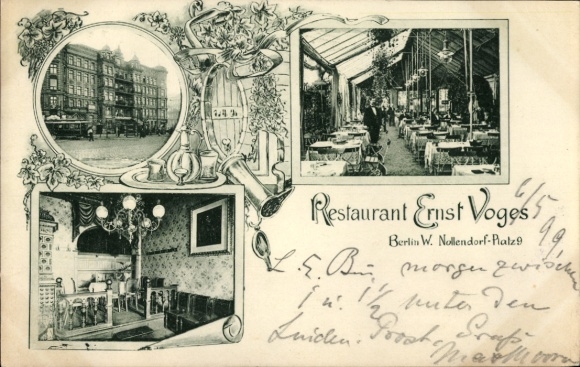 Restaurant Ernst Voges
Berlin W. Nollendorf-Platz 9
6/5 99.
morgen zwischen
1 u. 1 1/2 unter den
Linden. Prost, Gruß